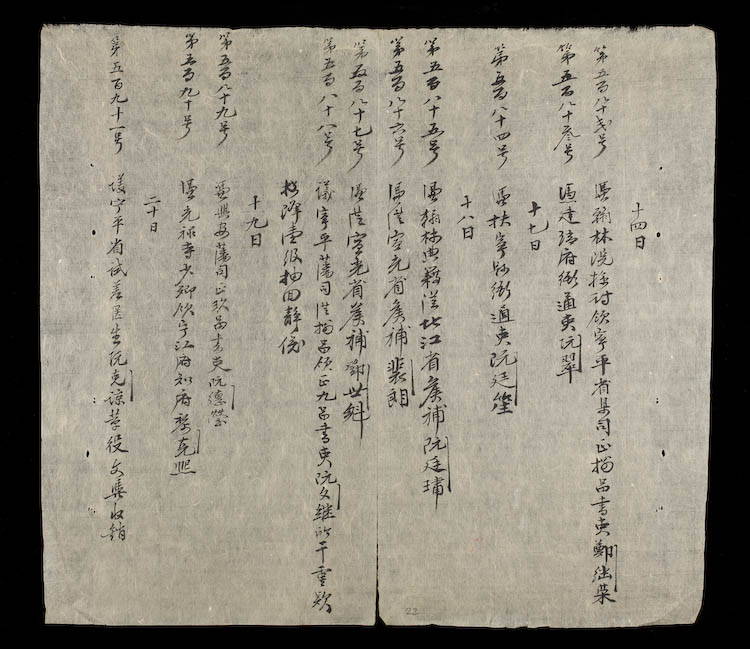 十四日
第五百八十弍号 憑翰林院檢討領寧平省臬司正捌品書吏鄭
第五百八十叁号 憑建瑞府衙通吏阮翠
十七日
第五百八十四号 憑扶寧縣衙通吏阮廷
十八日
第五百八十五号 憑翰林典籍從北江省候補阮廷璛
第五百八十六号 憑從宣光省候補裴朗
第五百八十七号 憑從宣光省候補謝世
第五百八十八号 議寧平藩司從捌品領正九品書吏阮文継所干重欵
擬降壹級抽回靜俟
十九日
第五百八十九号 憑興安藩司正玖品書吏阮德
第五百九十号 憑光祿寺少卿領寧江府知府黎克熙
二十日
第五百九十一号 議寧平省試差医生阮克諒革役文集收銷